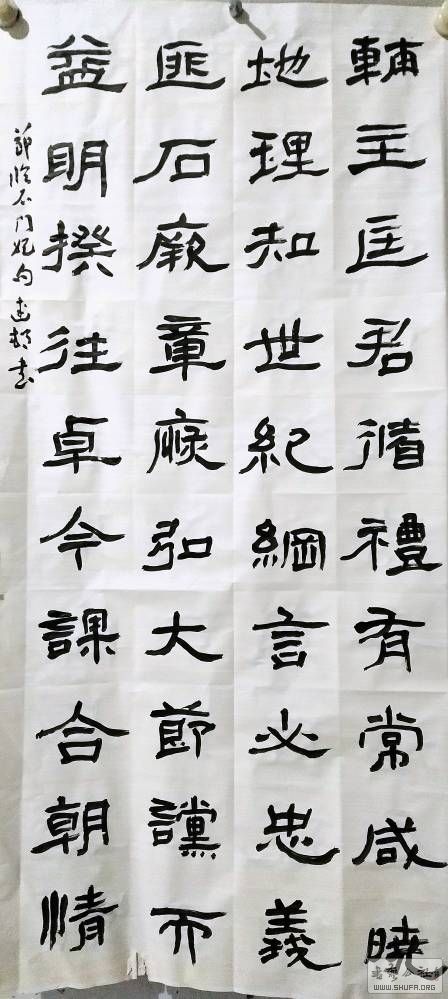 輔主匡君循禮有常咸曉
地理知世紀綱言必忠義
匪石厥章弘大節讜而
益明揆往卓今課合朝情
節臨石门頌句書
WWW.SHUFA.ORG